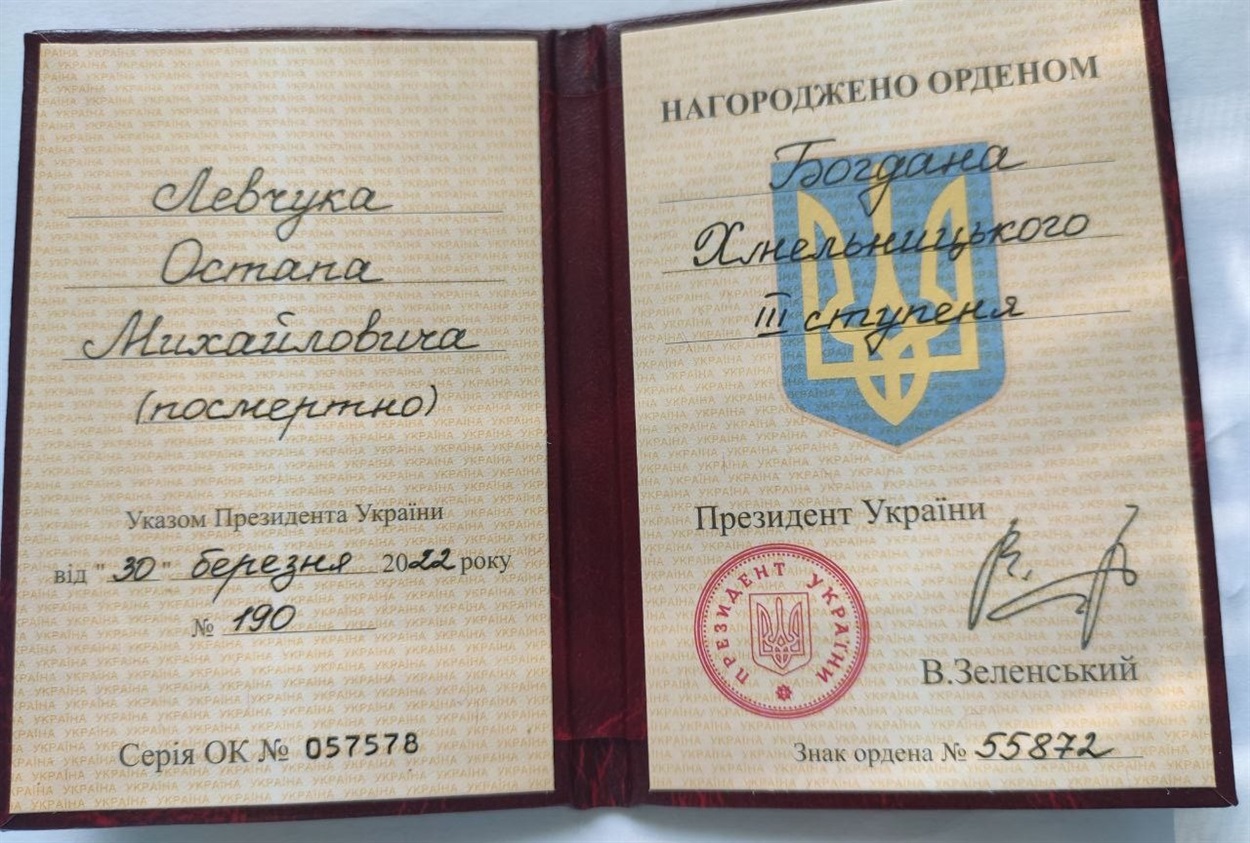 Левчука
Остапа
Михайловича
(посмертно)
Указом Президента України
від "30" березня 2022 року
№ 190
Серія ОК № 057578
НАГОРОДЖЕНО ОРДЕНОМ
Богдана
Хмельницького
III ступеня
Президент України
ПРЕЗИДЕНТ УКРАЇНИ
В.Зеленський
Знак ордена № 55872